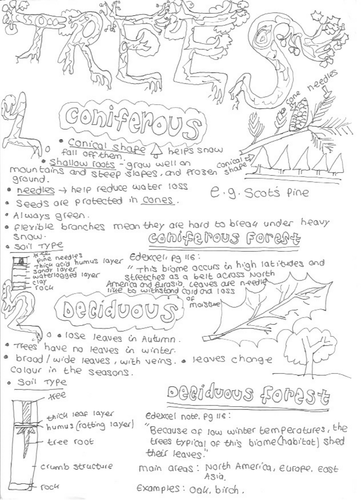 TREES
needles
pine cone
Coniferous
• Conical shape △ helps snow
fall off them.
• Shallow roots - grow well on
mountains and steep slopes, and frozen
ground.
conical shape
• needles → help reduce water loss
e.g. Scots Pine
• Seeds are protected in cones.
• Always green.
• flexible branches mean they are hard to break under heavy
snow.
• Soil Type
Coniferous Forest
tree
pine needles
thick acid humus layer
sandy layer
waterlogged layer
clay
rock
Edexcel: pg 116:
"This biome occurs in high latitudes and
stretches as a belt across North
America and Eurasia. Leaves are needle
like to withstand cold and loss
of
moisture"
Deciduous
• lose leaves in Autumn.
• Trees have no leaves in winter.
• broad/wide leaves, with veins.
• leaves change
colour in the seasons.
• Soil Type
Deciduous Forest
tree
thick leaf layer
humus (rotting layer)
tree root
crumb structure
rock
Edexcel note. pg 116:
"Because of low winter temperatures, the
trees typical of this biome (habitat) shed
their leaves."
main areas: North America, Europe. east
Asia.
Examples: Oak. birch.